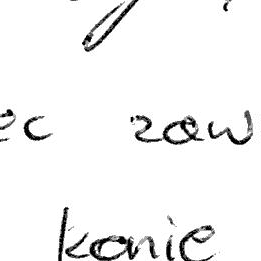 ec zaw
konie